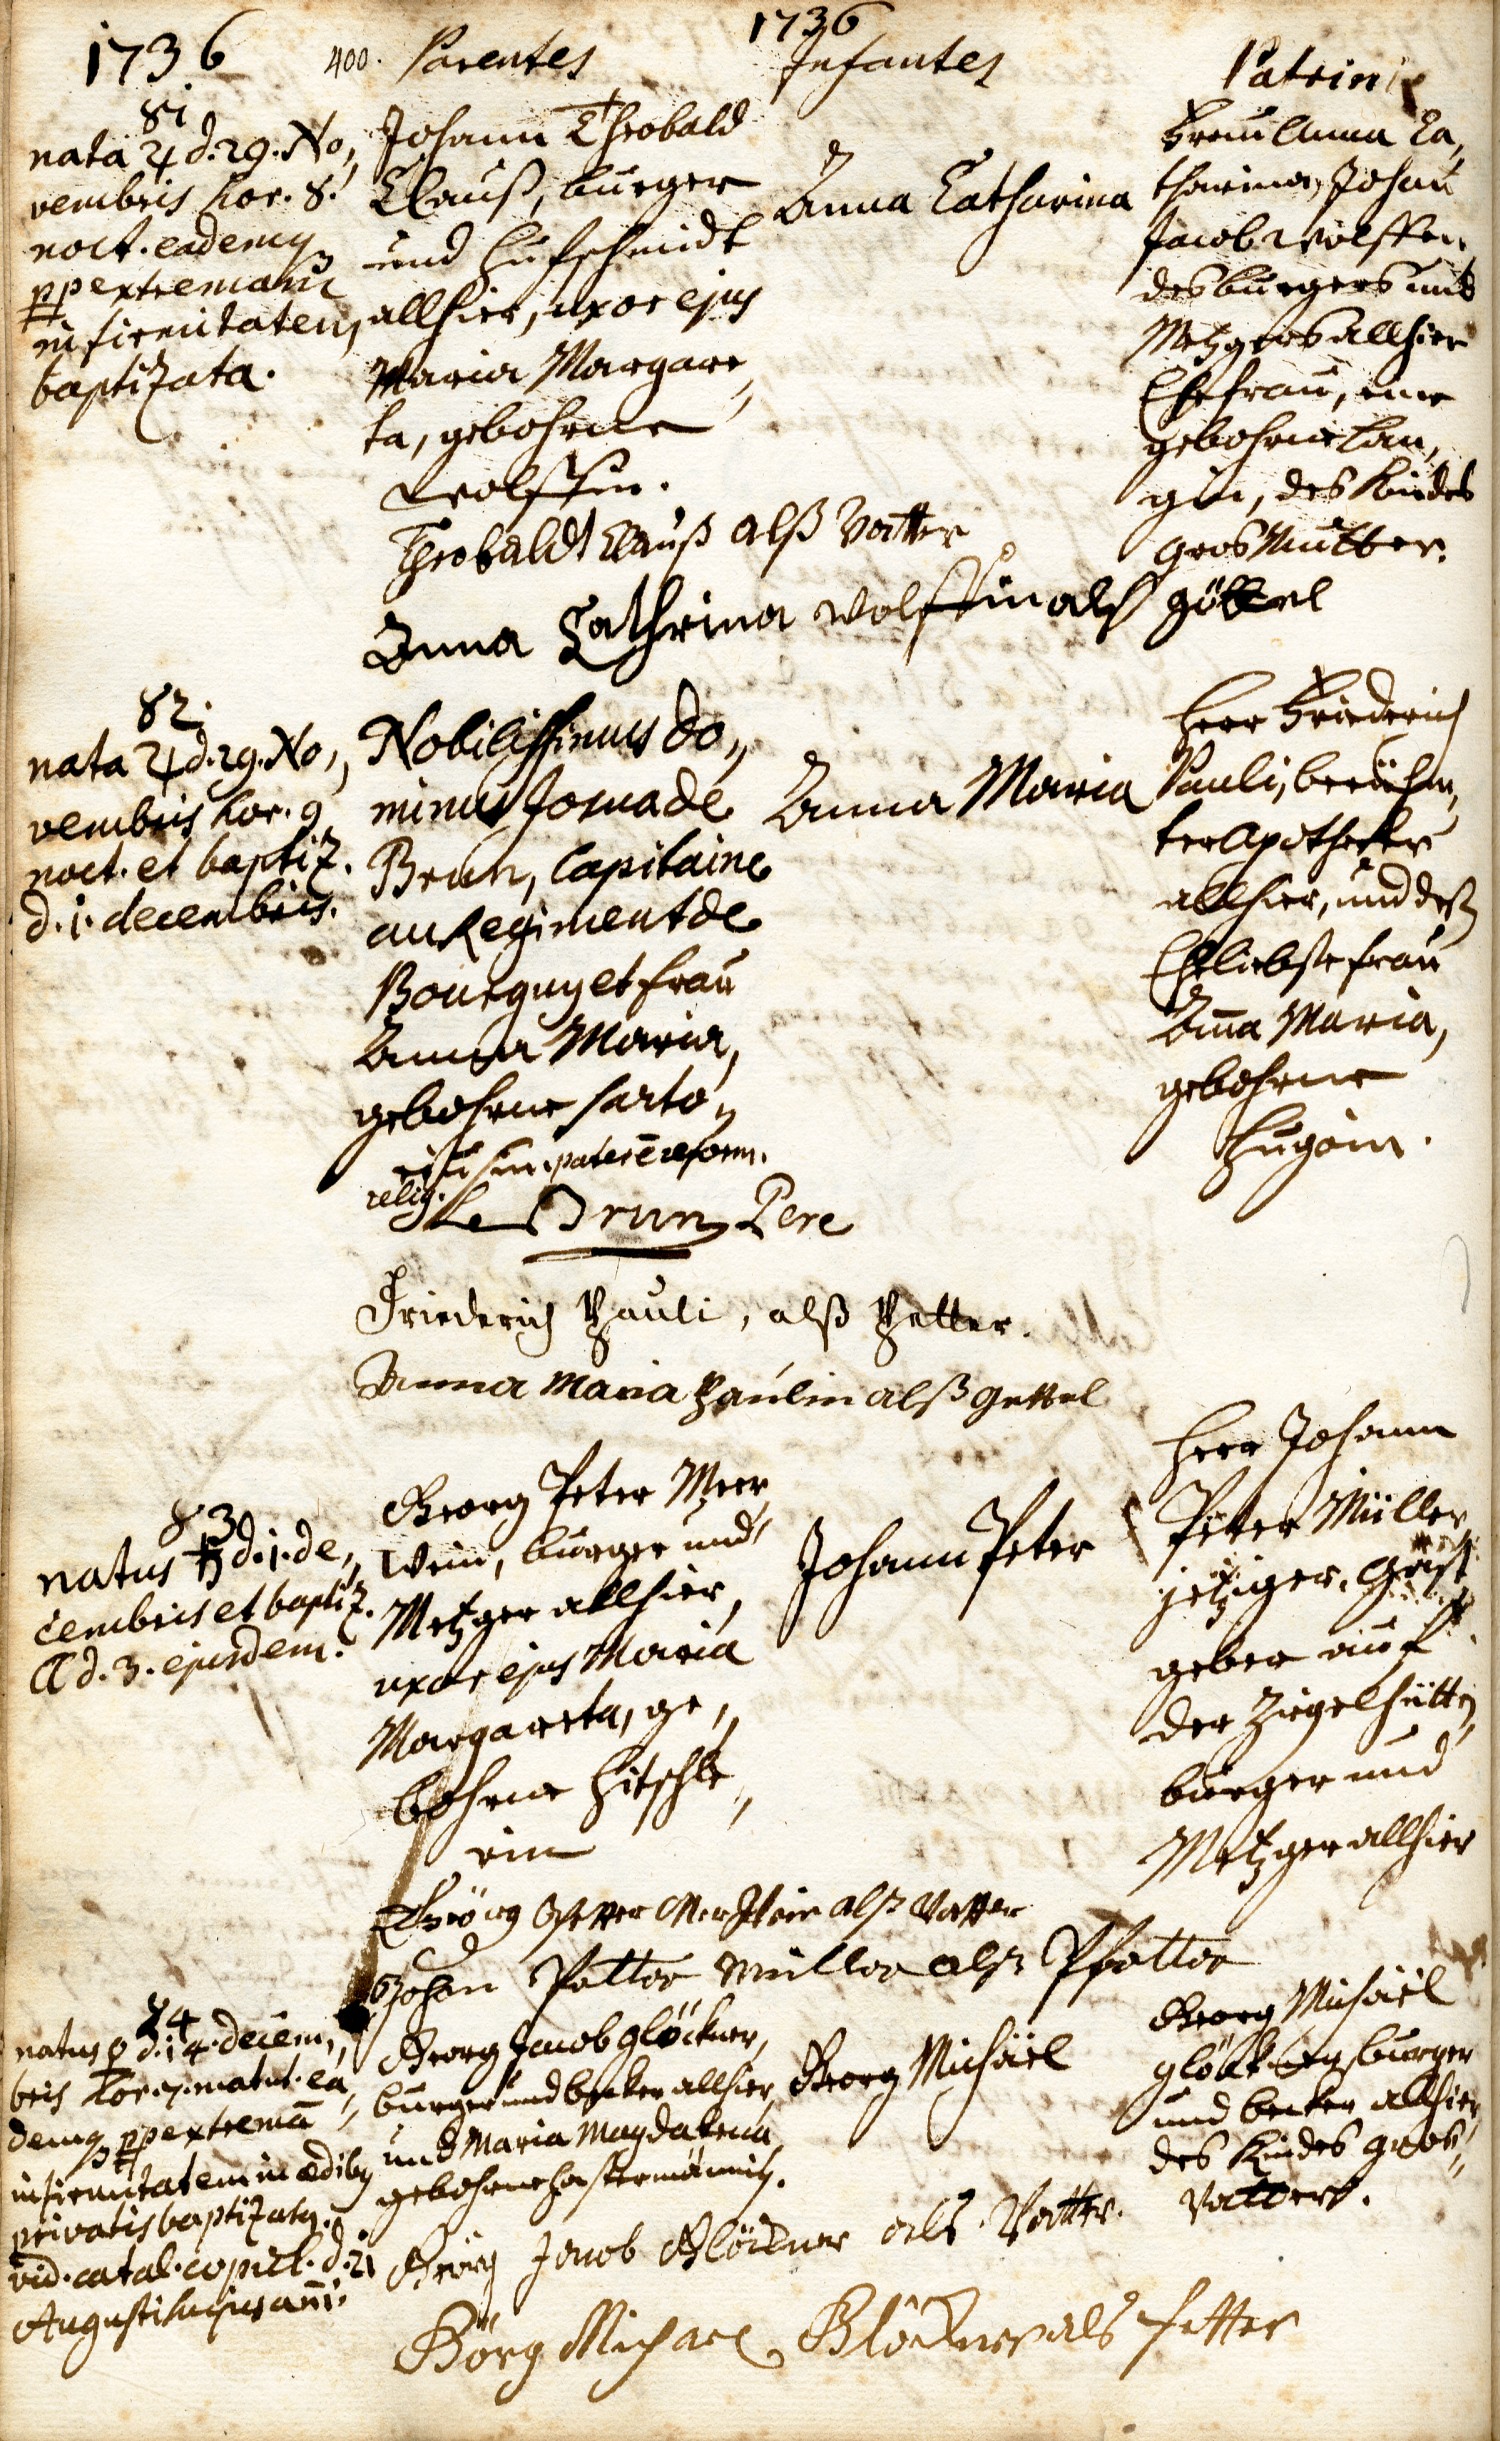 1736
1736
400. Parentes
Infantes
Patrini
81
nata ♃ d. 29. No,,
vembris hor. 8.
noct. eademq
pp extremam
infirmitatem
baptizata.
Johann Theobald
Clauß, burger
und Hufschmidt
allhier, uxor ejus
Maria Margare,,
ta, gebohrne
Wolffin.
Anna Catharina
Frau Anna Ca,,
tharina, Johañ
Jacob Wolffen
des burgers und
Metzgers allhier
Ehefrau, eine
gebohrne Lan,,
gin, des Kindes
GrosMutter.
Theobaldt Clauß alß Vatter
Anna Cathrina Wolffin als göttel
82.
nata ♃ d. 29. No,,
vembris hor. 9
noct. et baptiz.
d. 1. decembris.
Nobilissimus do,,
minus de
Brun, Capitaine
au Regiment de
et frau
Anna Maria,
gebohrne Sarto,,
riusin. pater ē reform.
relig.
Anna Maria
Herr Friederich
Pauli, berühm,,
ter Apothecker
allhier, und deß
Eheliebste frau
Añna Maria,
gebohrne
Hugoin.
Le Brun Pere
Friederich Pauli, alß Petter.
Anna Maria Paulin alß gettel
83
natus ♄ d. 1. de,,
cembris et baptiz.
☾ d. 3. ejusdem.
Georg Peter Meer,,
Wein, burger und
Metzger allhier,
uxor ejus Maria
Margareta, ge,,
bohrne Hitschle,,
rin
Johann Peter
Herr Johann
Peter Müller
jetziger Gast
geber auf
der Ziegelhütte,
burger und
Metzger allhier
Geörg Petter MerWein alß Vatter
Johan Petter Müller alß Pfetter
84
natus ♀ d. 14. decem,,
bris hor. 7. matut. ea,,
demq pp extremā
infirmitatem in ædibq
privatis baptizatq.
vid. catal. copul. d. 21
Augusti hujus anni.
Georg Jacob Glöckner,
burger und becker allhier,
und Maria Magdalena
gebohrne Hastermännin.
Georg Michäel
Georg Michäel
Glöckner burger
und becker allhier
des Kindes Gros,,
Vatter.
Geörg Jacob Glöckner als Vatter.
Görg Michael Glöckner als Petter